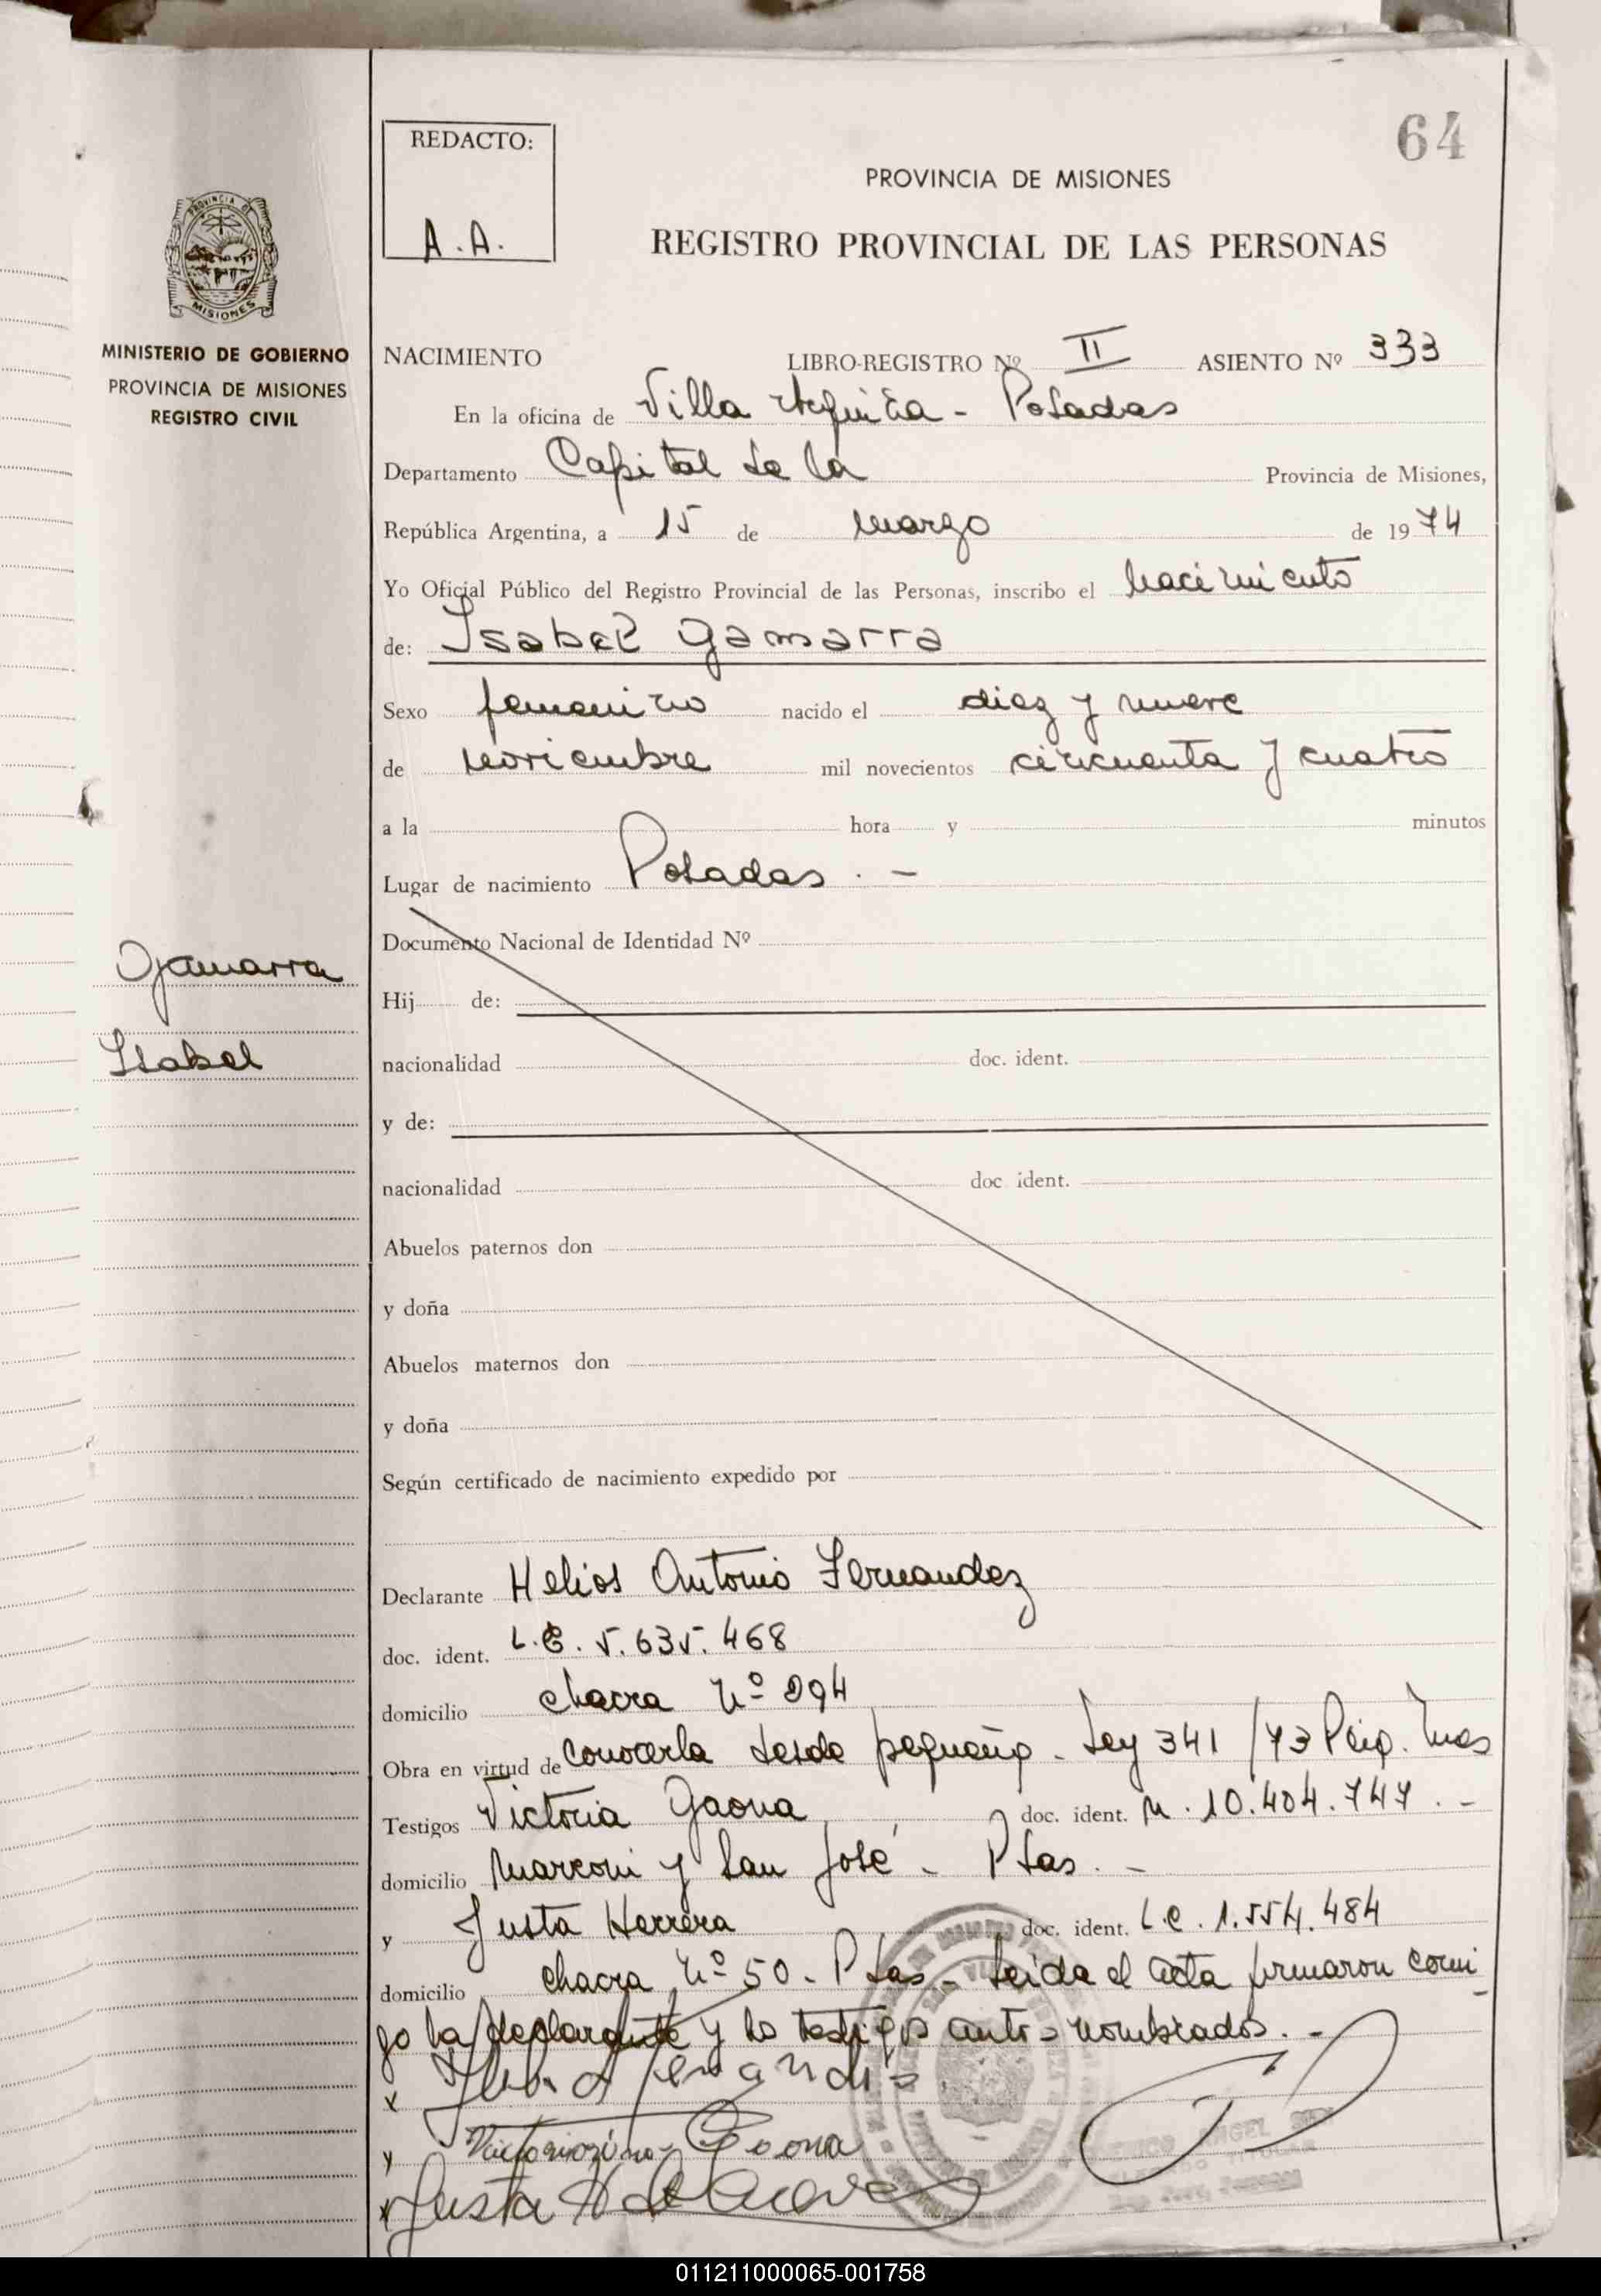 64
REDACTO:
A.A.
PROVINCIA DE MISIONES
REGISTRO PROVINCIAL DE LAS PERSONAS
PROVINCIA DE
MISIONES
MINISTERIO DE GOBIERNO
PROVINCIA DE MISIONES
REGISTRO CIVIL
NACIMIENTO LIBRO-REGISTRO Nº II ASIENTO Nº 333
En la oficina de Villa Urquiza - Posadas
Departamento Capital de la Provincia de Misiones,
República Argentina, a 15 de marzo de 1974
Yo Oficial Público del Registro Provincial de las Personas, inscribo el nacimiento
de: Isabel Gamarra
Sexo femenino nacido el diez y nueve
de noviembre mil novecientos cincuenta y cuatro
a la hora y minutos
Lugar de nacimiento Posadas . -
Documento Nacional de Identidad Nº
Gamarra
Isabel
Hij de:
nacionalidad doc. ident.
y de:
nacionalidad doc ident.
Abuelos paternos don
y doña
Abuelos maternos don
y doña
Según certificado de nacimiento expedido por
Declarante Helios Antonio Fernandez
doc. ident. L.E. 5.635.468
domicilio chacra Nº 294
Obra en virtud de conocerla desde pequeña - Ley 341/73
Testigos Victoria Gaona doc. ident. M. 10.404.747 . -
domicilio Marconi y San José - Psas. -
y Justa Herrera doc. ident. L.C. 1.554.484
domicilio chacra Nº 50 - Psas - Leida el acta firmaron conmi
go la declarante y los testigos antes nombrados. -
x
y Gaona
x Justa H de
ANGEL
TITULAR
011211000065-001758